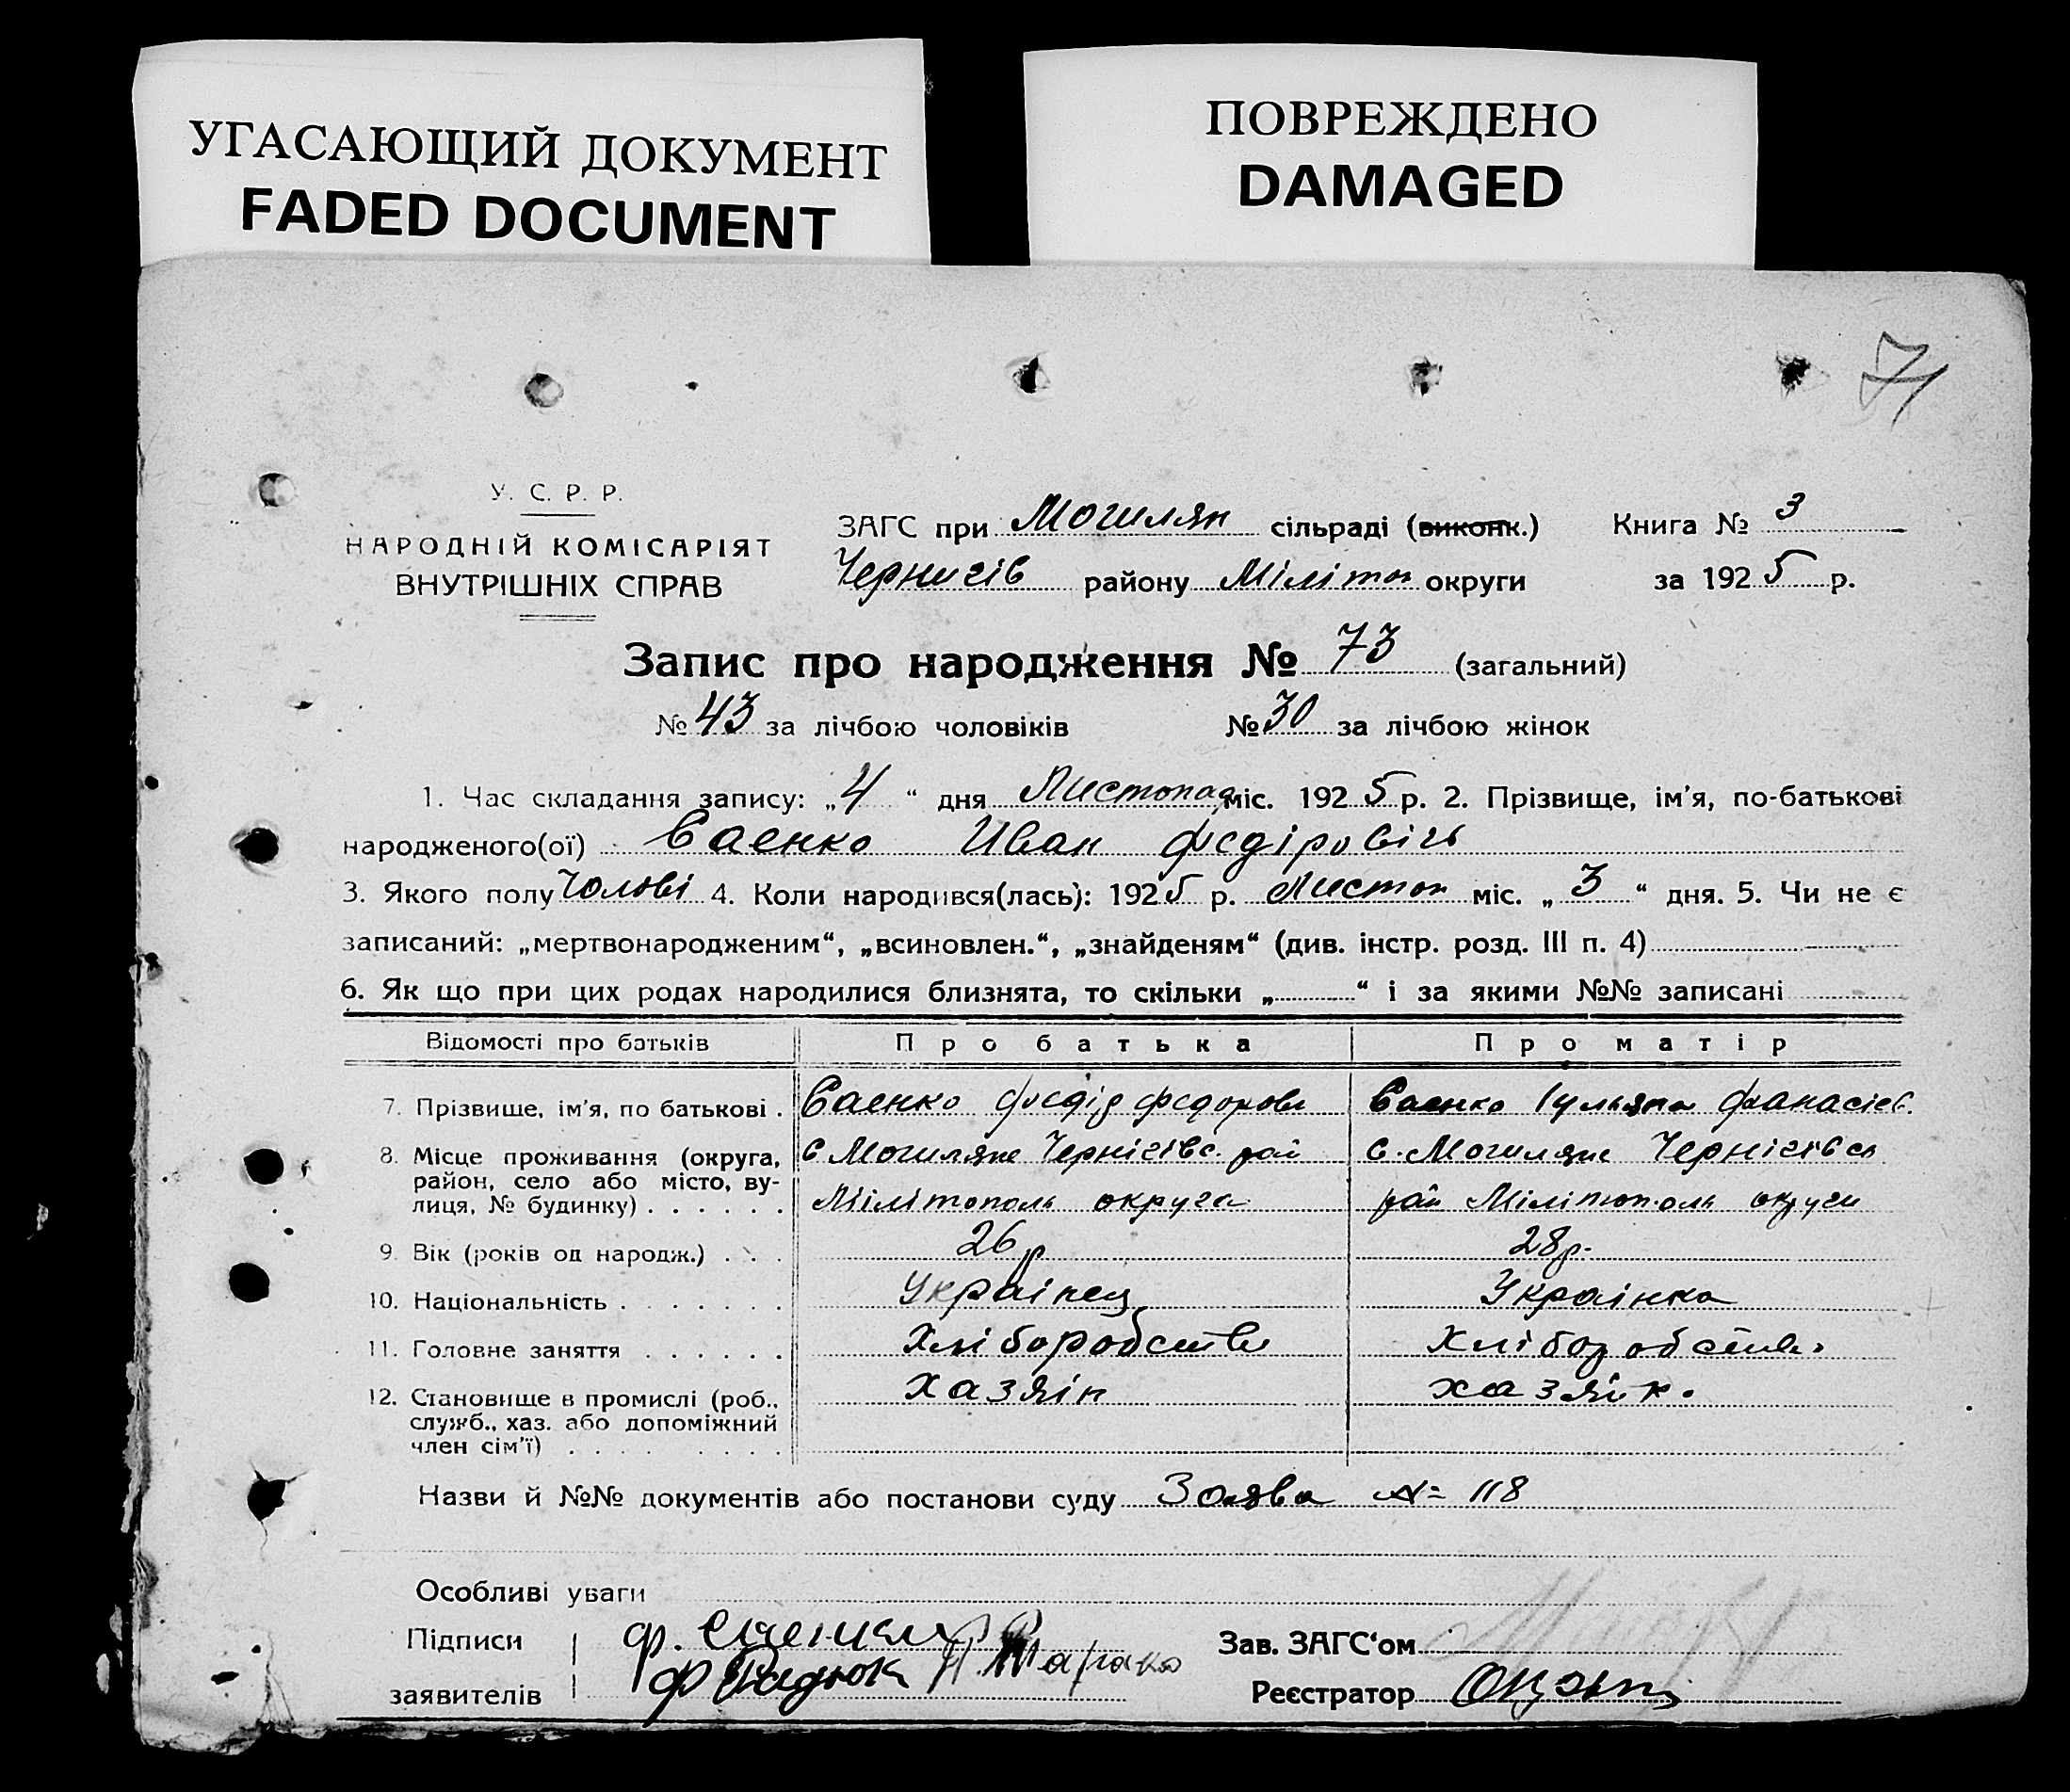 УГАСАЮЩИЙ ДОКУМЕНТ
FADED DOCUMENT
ПОВРЕЖДЕНО
DAMAGED
71
У. С. Р. Р.
НАРОДНІЙ КОМІСАРІЯТ
ВНУТРІШНІХ СПРАВ
ЗАГС при Могилян сільраді (виконк.) Книга № 3
Чернигів району Міліто округи за 1925 р.
Запис про народження № 73 (загальний)
№ 43 за лічбою чоловіків № 30 за лічбою жінок
1. Час складання запису: „4“ дня Листопад міс. 1925 р. 2. Прізвище, ім'я, по-батькові
народженого(ої) Саенко Иван Федірович
3. Якого полу Чолові 4. Коли народився(лась): 1925 р. Листоп міс. „3“ дня. 5. Чи не є
записаний: „мертвонародженим“, „всиновлен.“, „знайденям“ (див. інстр. розд. III п. 4)
6. Як що при цих родах народилися близнята, то скільки „ “ і за якими №№ записані
Відомості про батьків Про батька Про матір
7. Прізвище, ім'я, по батькові . Саенко Федір Федорови Саенко Іульяна Фанасіев.
8. Місце проживання (округа, С Могиляне Чернігівс. рай С. Могиляне Чернігівсь
район, село або місто, ву-
лиця, № будинку) . . . . . . Мілітополь округа рай Мілітополь округи
9. Вік (років од народж.) . . . 26 р 28 р.
10. Національність . . . . . . . Українец Українка
11. Головне заняття . . . . . . Хліборобств Хліборобств
12. Становище в промислі (роб., Хазяін хазяйк.
служб., хаз. або допоміжний
член сім'ї) . . . . . . .
Назви й №№ документів або постанови суду Заява № 118
Особливі уваги
Підписи
Зав. ЗАГС'ом
заявителів
Реєстратор